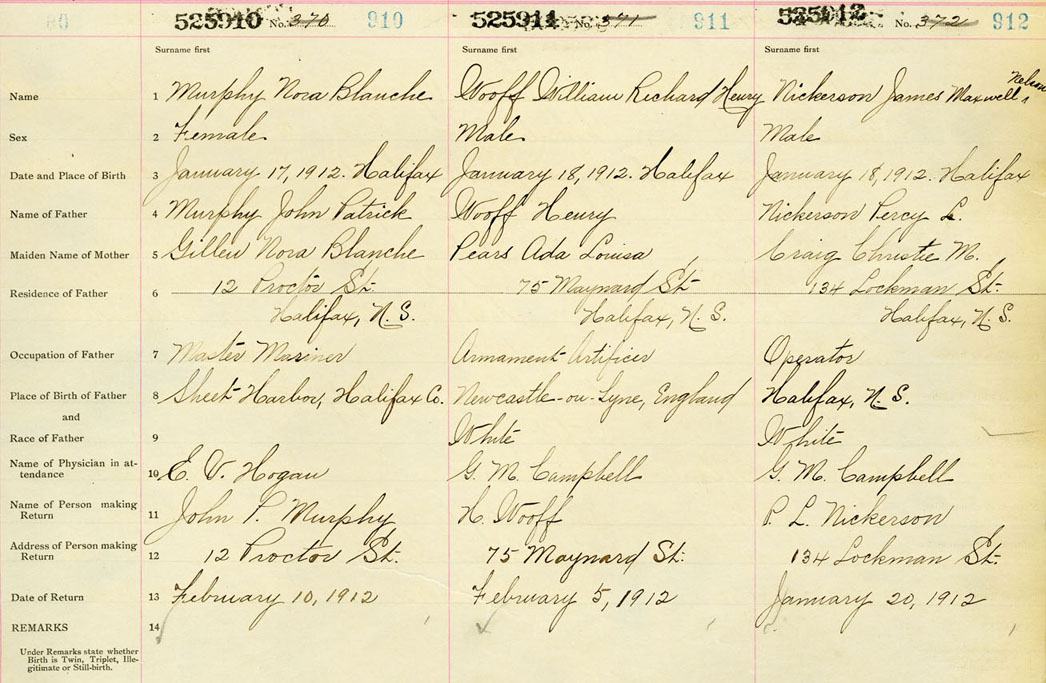 80 525910 No. 370 910 525911 No. 371 911 525912 No. 372 912
Surname first Surname first Surname first
Nelson
Name 1 Murphy Nora Blanche Wooff William Richard Henry Nickerson James Maxwell
Sex 2 Female Male Male
Date and Place of Birth 3 January 17, 1912. Halifax January 18, 1912. Halifax January 18, 1912. Halifax
Name of Father 4 Murphy John Patrick Wooff Henry Nickerson Percy L.
Maiden Name of Mother 5 Gillen Nora Blanche Pears Ada Louisa Craig Christie M.
Residence of Father 6 12 Proctor St. 75 Maynard St. 134 Lockman St.
Halifax, N. S. Halifax, N. S. Halifax, N. S.
Occupation of Father 7 Master Mariner Armament Artificer Operator
Place of Birth of Father 8 Sheet Harbor, Halifax Co. Newcastle-on-Tyne, England Halifax, N. S.
and
Race of Father 9 White White
Name of Physician in at-
tendance 10 E. V. Hogan G. M. Campbell G. M. Campbell
Name of Person making
Return 11 John P. Murphy H. Wooff P. L. Nickerson
Address of Person making
Return 12 12 Proctor St. 75 Maynard St. 134 Lockman St.
Date of Return 13 February 10, 1912 February 5, 1912 January 20, 1912
REMARKS 14
Under Remarks state whether
Birth is Twin, Triplet, Ille-
gitimate or Still-birth.